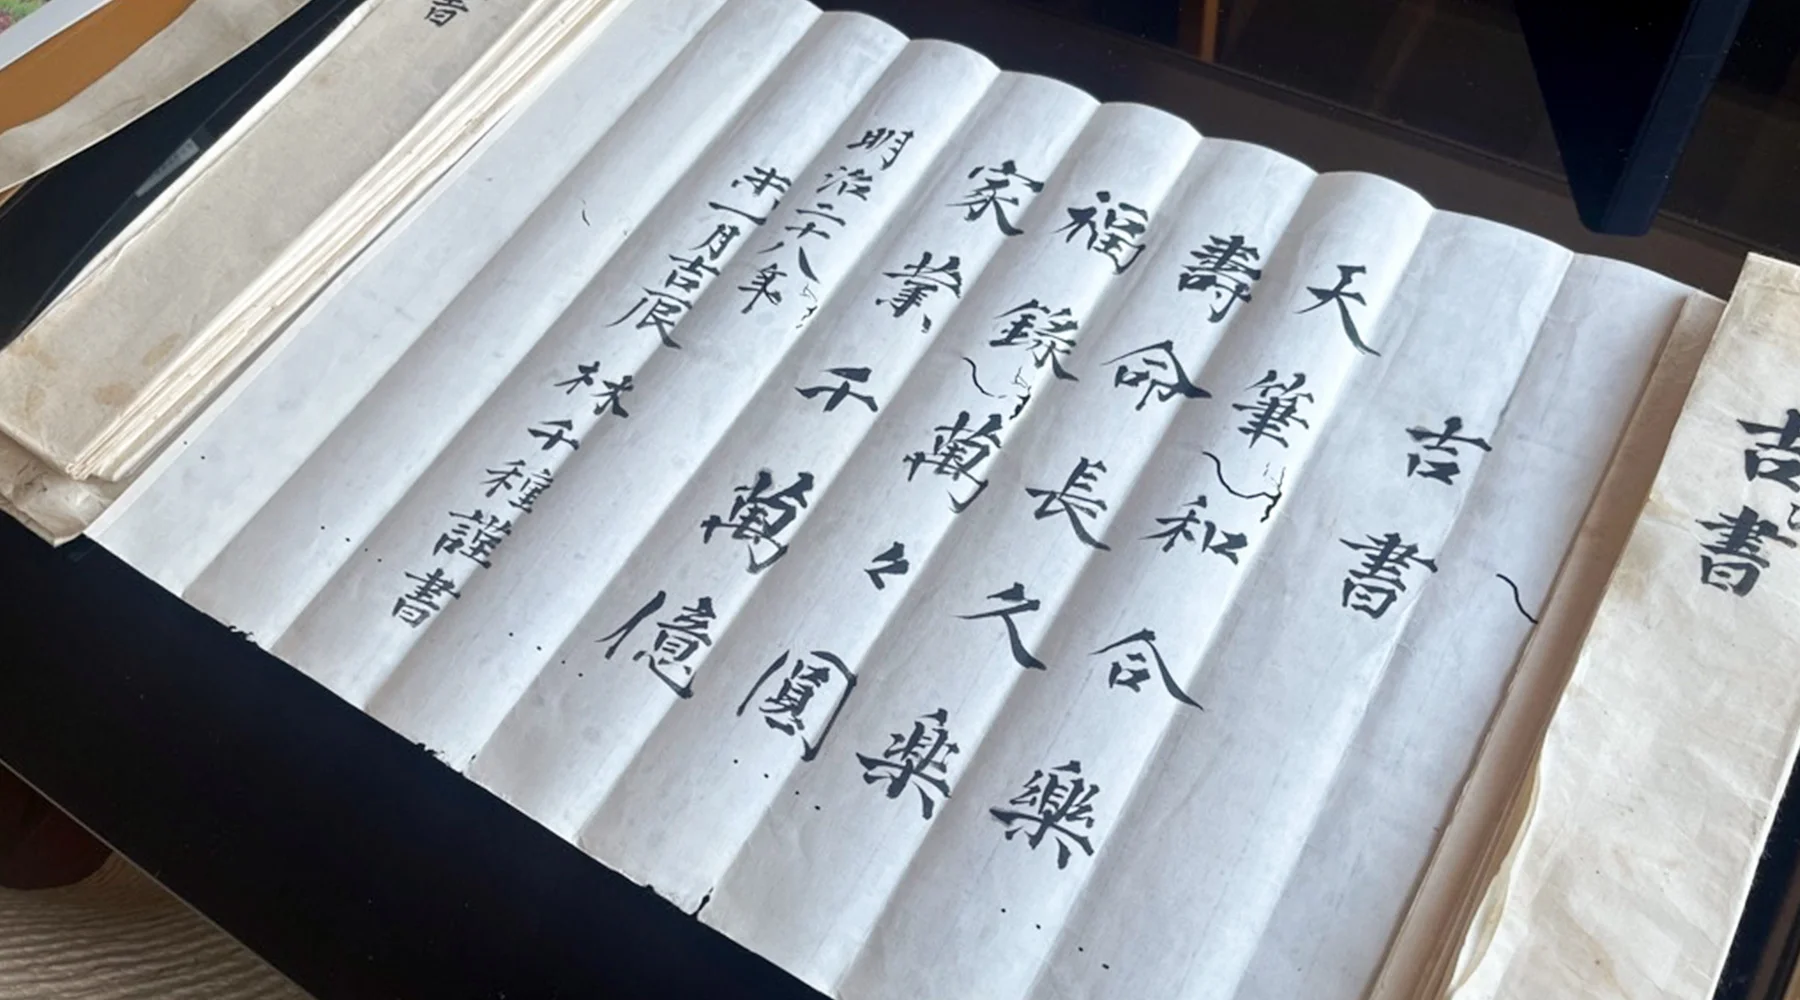 吉書
吉書
天筆和合樂
壽命長久楽
福録萬々圓
家業千萬億
明治二十八年
一月吉辰 林千種謹書
書